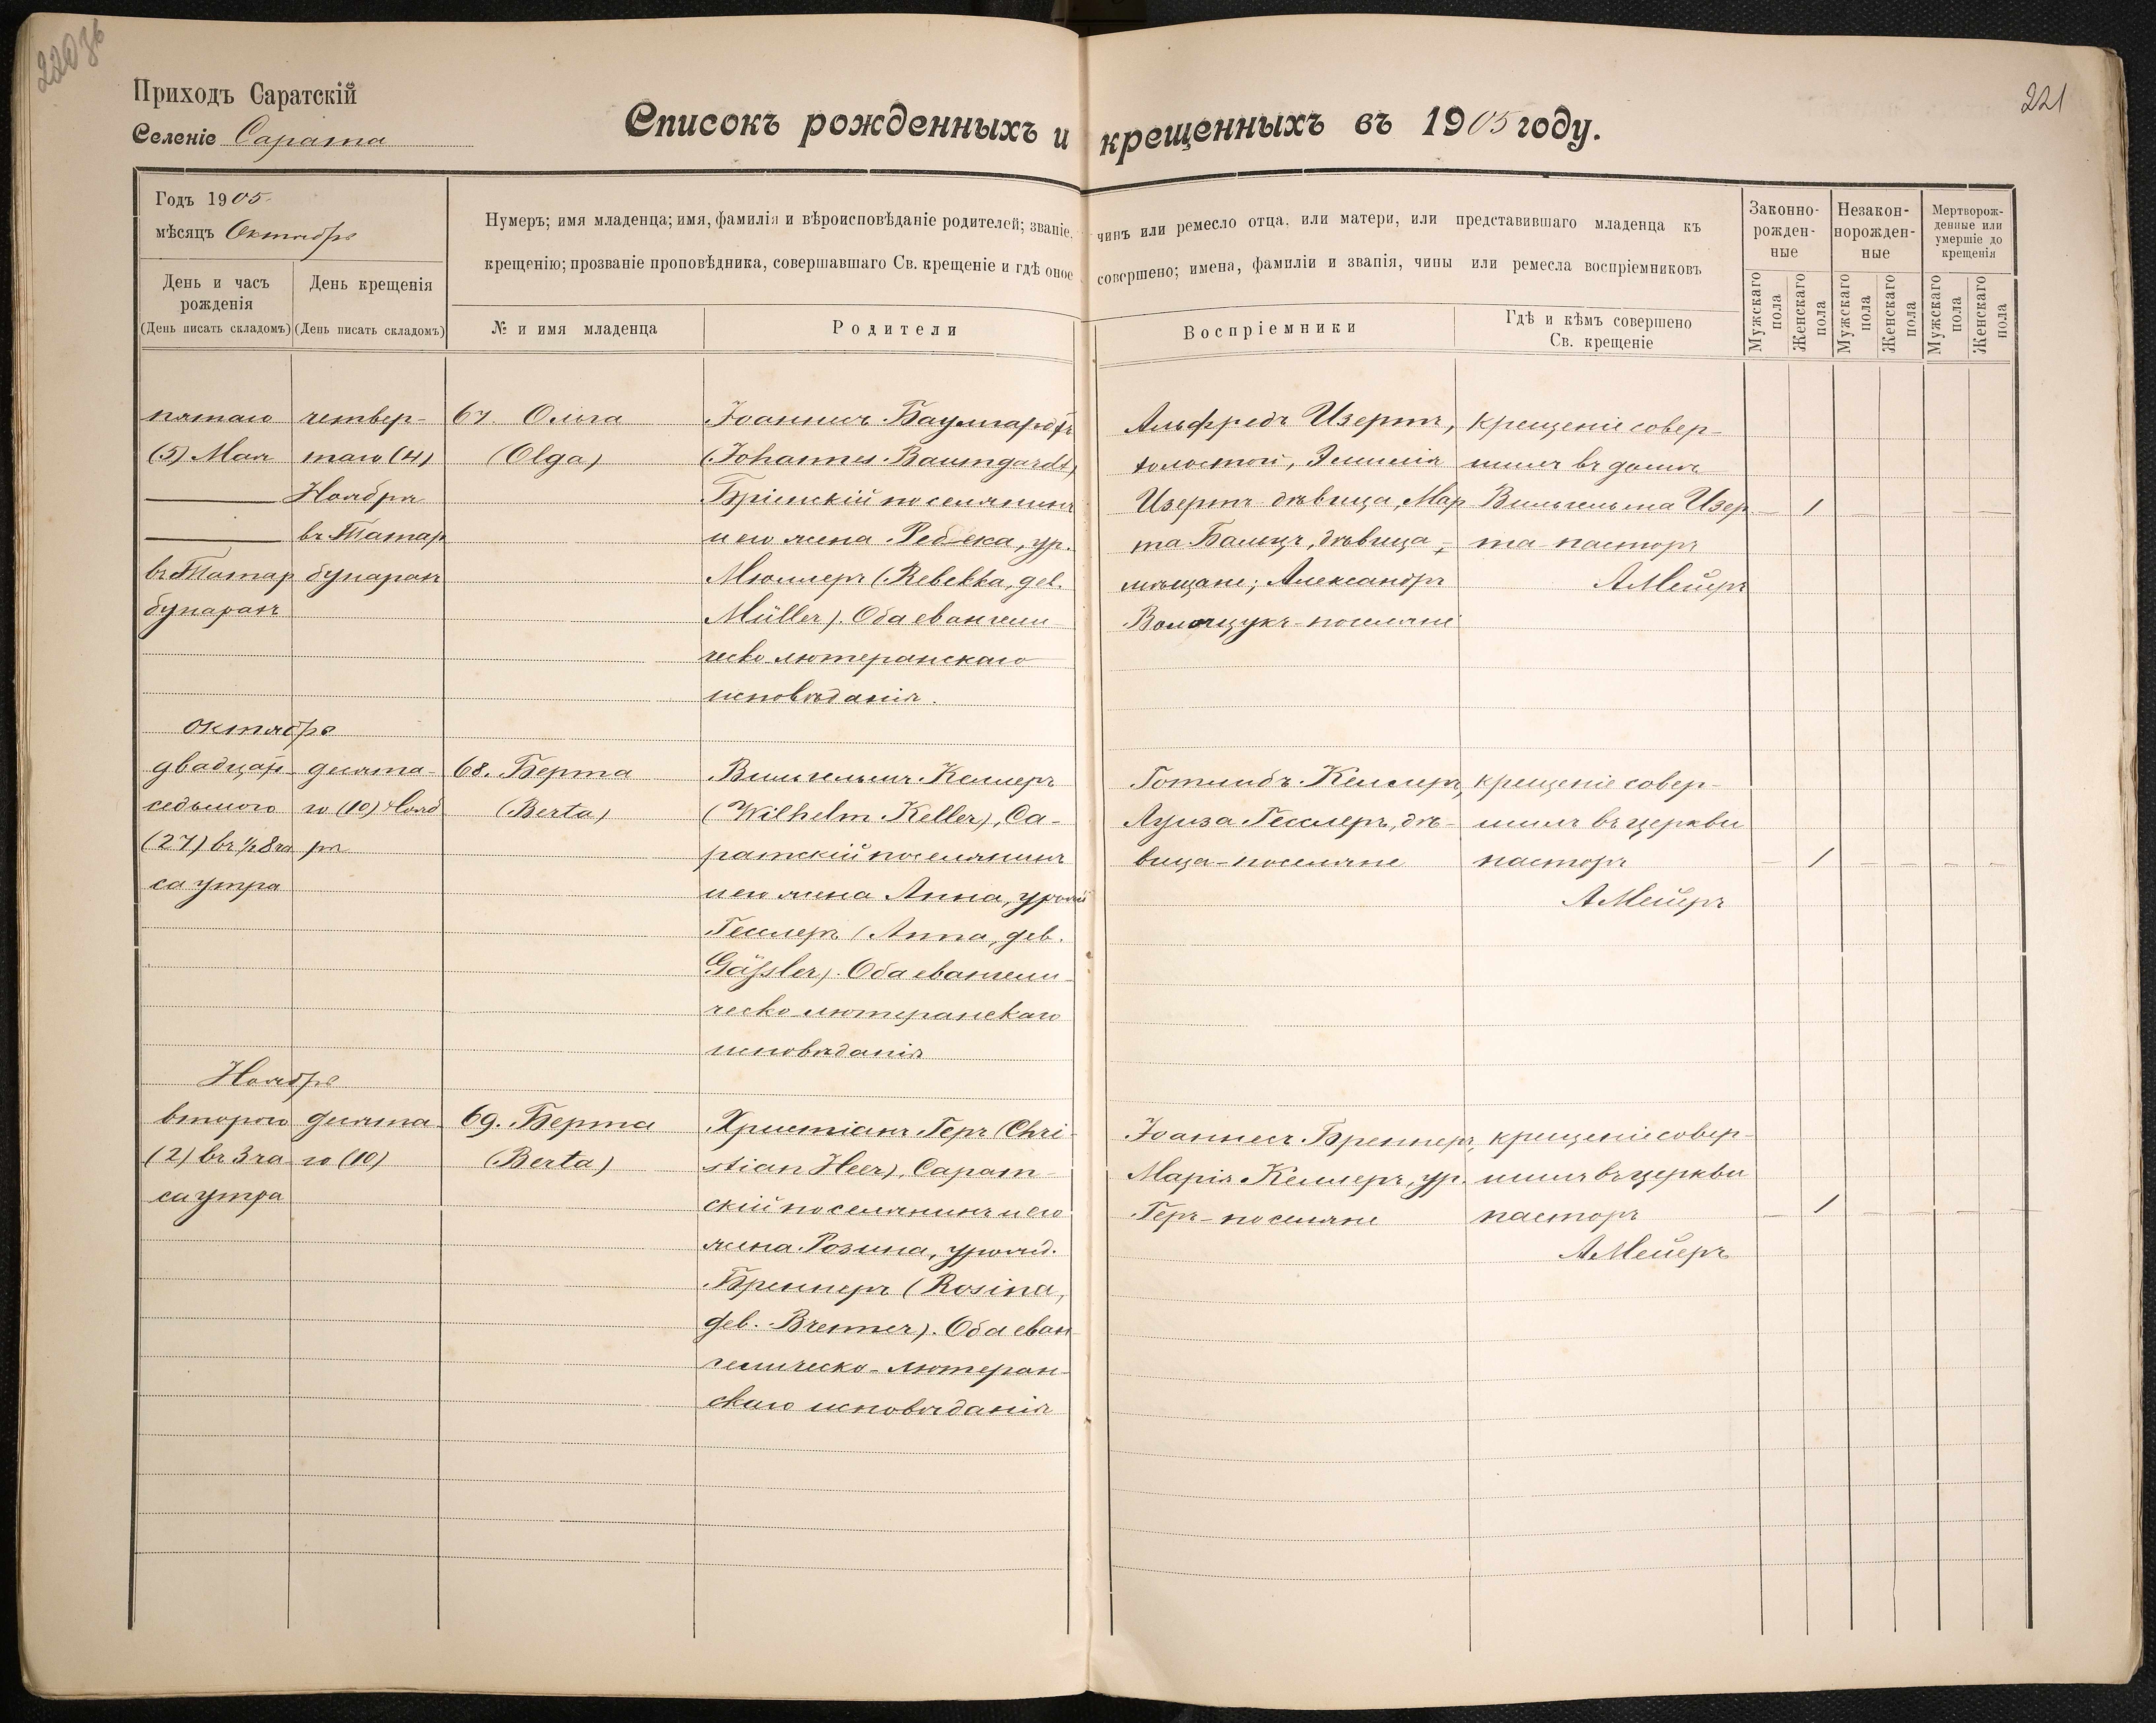 220 об
221
Приходъ Саратскій
Селеніе Сарата
Списокъ рожденныхъ и крещенныхъ въ 1905 году.
Годъ 1905
мѣсяцъ Октябрь
День и часъ рожденія
(День писать складомъ)
День крещенія
(День писать складомъ)
Нумеръ; имя младенца; имя, фамилія и вѣроисповѣданіе родителей; званіе, чинъ или ремесло отца, или матери, или представившаго младенца къ
крещенію; прозваніе проповѣдника, совершавшаго Св. крещеніе и гдѣ оное совершено; имена, фамиліи и званія, чины или ремесла воспріемниковъ
№ и имя младенца
Родители
Воспріемники
Гдѣ и кѣмъ совершено
Св. крещеніе
Законно-
рожден-
ные
Незакон-
норожден-
ные
Мертворож-
денные или
умершіе до
крещенія
Мужскаго пола
Женскаго пола
Мужскаго пола
Женскаго пола
Мужскаго пола
Женскаго пола
пятаго
(5) Мая
въ Татар
бунарахъ
четвер-
таго (4)
Ноября
въ Татар
бунарахъ
67. Ольга
(Olga)
Іоаннесъ Баумгардтъ
(Johannes Baumgardt)
Бріенскій поселянинъ
и его жена Ребека, ур.
Мюллеръ (Rebekka, geb.
Müller). Оба евангели-
ческо лютеранскаго
исповѣданія.
Альфредъ Изертъ,
холостой, Эмилія
Изертъ дѣвица, Мар
та Бальцъ, дѣвица,
мѣщане; Александръ
Волощукъ - поселяне
крещеніе совер-
шилъ въ домѣ
Вильгельма Изер
та пасторъ
АМейеръ
1
октябрь
двадцать
седьмого
(27) въ ½8 ча
са утра
десята-
го (10) Нояб
ря
68. Берта
(Berta)
Вильгельмъ Келлеръ
(Wilhelm Keller), Са-
ратскій поселянинъ
и его жена Анна, урожд
Гесслеръ (Anna, geb.
Gässler). Оба евангели-
ческо лютеранскаго
исповѣданія
Готлибъ Келлеръ,
Луиза Гесслеръ, дѣ-
вица - поселяне
крещеніе совер-
шилъ въ церкви
пасторъ
АМейеръ
1
Ноябрь
второго
(2) въ 3 ча
са утра
десята
го (10)
69. Берта
(Berta)
Христіанъ Геръ (Chri-
stian Heer), Сарат-
скій поселянинъ и его
жена Розина, урожд.
Бреннеръ (Rosina,
geb. Brenner). Оба еван
гелическо-лютеран-
скаго исповѣданія
Іоаннесъ Бреннеръ,
Марія Келлеръ, ур.
Геръ - поселяне
крещеніе совер-
шилъ въ церкви
пасторъ
АМейеръ
1